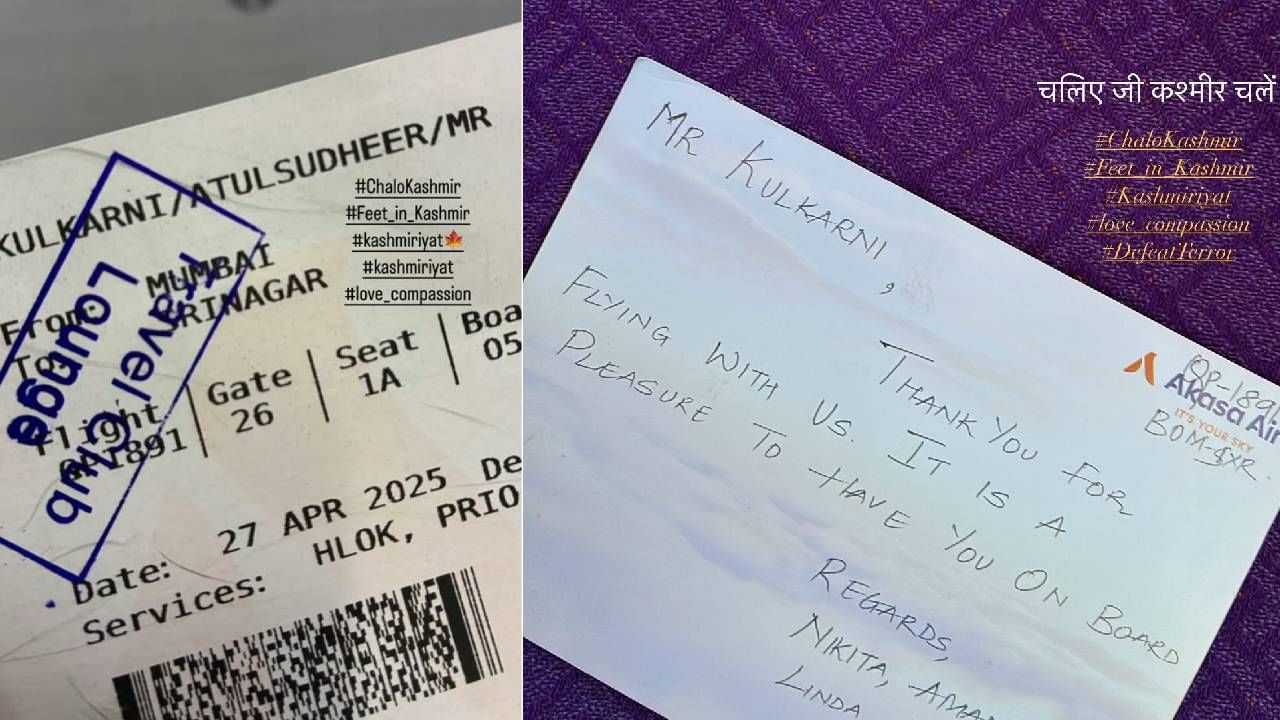 KULKARNI/ATULSUDHEER/MR
From: MUMBAI
To: SRINAGAR
Flight Gate Seat Boa
QP1891 26 1A 05
Date: 27 APR 2025 De
Services: HLOK, PRIO
Travel Club
Lounge
#ChaloKashmir
#Feet_in_Kashmir
#kashmiriyat🍁
#kashmiriyat
#love_compassion
चलिए जी कश्मीर चलें
#ChaloKashmir
#Feet_in_Kashmir
#Kashmiriyat
#love_compassion
#DefeatTerror
MR KULKARNI,
THANK YOU FOR
FLYING WITH US. IT IS A
PLEASURE TO HAVE YOU ON BOARD
REGARDS,
NIKITA, AMAN
LINDA
QP-1891
Akasa Air
IT'S YOUR SKY
BOM-SXR